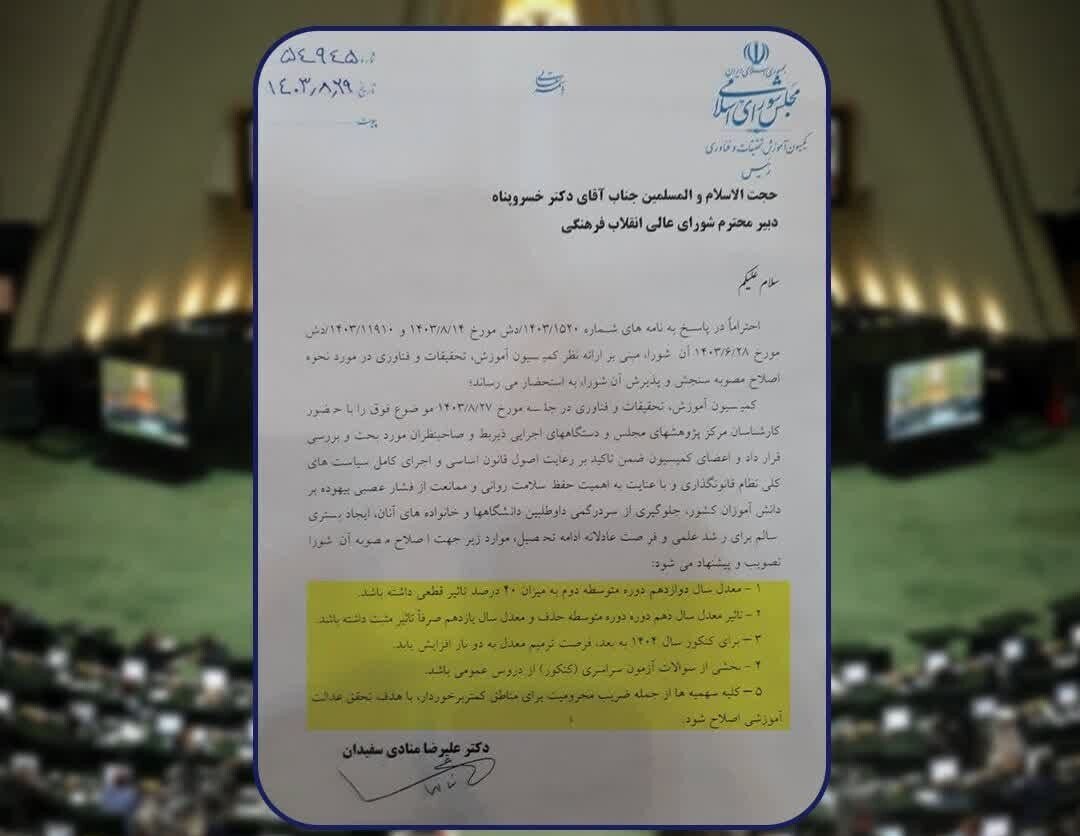 شماره ۵٤٩٤۵
تاریخ ۱٤۰۳٫۸٫۲۹
پیوست
جمهوری اسلامی ایران
مجلس شورای اسلامی
کمیسیون آموزش، تحقیقات و فناوری
رئیس
حجت الاسلام و المسلمین جناب آقای دکتر خسروپناه
دبیر محترم شورای عالی انقلاب فرهنگی
سلام علیکم
احتراماً در پاسخ به نامه های شماره ۱۴۰۳/۱۵۲۰/دش مورخ ۱۴۰۳/۸/۱۴ و ۱۴۰۳/۱۱۹۱۰/دش
مورخ ۱۴۰۳/۶/۲۸ آن شورا، مبنی بر ارائه نظر کمیسیون آموزش، تحقیقات و فناوری در مورد نحوه
اصلاح مصوبه سنجش و پذیرش آن شورا، به استحضار می رساند؛
کمیسیون آموزش، تحقیقات و فناوری در جلسه مورخ ۱۴۰۳/۸/۲۷ موضوع فوق را با حضور
کارشناسان مرکز پژوهشهای مجلس و دستگاههای اجرایی ذیربط و صاحبنظران مورد بحث و بررسی
قرار داد و اعضای کمیسیون ضمن تاکید بر رعایت اصول قانون اساسی و اجرای کامل سیاست های
کلی نظام قانونگذاری و با عنایت به اهمیت حفظ سلامت روانی و ممانعت از فشار عصبی بیهوده بر
دانش آموزان کشور، جلوگیری از سردرگمی داوطلبین دانشگاهها و خانواده های آنان، ایجاد بستری
سالم برای رشد علمی و فرصت عادلانه ادامه تحصیل، موارد زیر جهت اصلاح مصوبه آن شورا
تصویب و پیشنهاد می شود:
۱ – معدل سال دوازدهم دوره متوسطه دوم به میزان ۴۰ درصد تاثیر قطعی داشته باشد.
۲ – تاثیر معدل سال دهم دوره دوره متوسطه حذف و معدل سال یازدهم صرفاً تاثیر مثبت داشته باشد.
۳ – برای کنکور سال ۱۴۰۴ به بعد، فرصت ترمیم معدل به دو بار افزایش یابد.
۴ – بخشی از سوالات آزمون سراسری (کنکور) از دروس عمومی باشد.
۵ – کلیه سهمیه ها از جمله ضریب محرومیت برای مناطق کمتربرخوردار، با هدف تحقق عدالت
آموزشی اصلاح شود.
دکتر علیرضا منادی سفیدان